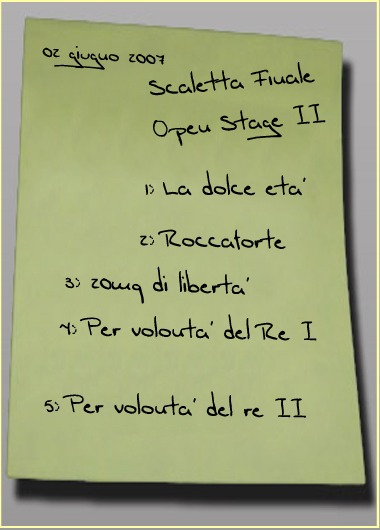 02 giugno 2007
Scaletta Finale
Open Stage II
1) La dolce eta'
2) Roccaforte
3) 20mg di liberta'
4) Per volonta' del Re I
5) Per volonta' del re II